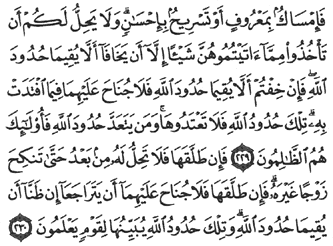 فَإِمْسَاكٌۢ بِمَعْرُوفٍ أَوْ تَسْرِيحٌۢ بِإِحْسَٰنٍۗ وَلَا يَحِلُّ لَكُمْ أَن
تَأْخُذُوا۟ مِمَّآ ءَاتَيْتُمُوهُنَّ شَيْـًٔا إِلَّآ أَن يَخَافَآ أَلَّا يُقِيمَا حُدُودَ
ٱللَّهِۖ فَإِنْ خِفْتُمْ أَلَّا يُقِيمَا حُدُودَ ٱللَّهِ فَلَا جُنَاحَ عَلَيْهِمَا فِيمَا ٱفْتَدَتْ
بِهِۦۗ تِلْكَ حُدُودُ ٱللَّهِ فَلَا تَعْتَدُوهَاۚ وَمَن يَتَعَدَّ حُدُودَ ٱللَّهِ فَأُو۟لَٰٓئِكَ
هُمُ ٱلظَّٰلِمُونَ ٢٢٩ فَإِن طَلَّقَهَا فَلَا تَحِلُّ لَهُۥ مِنۢ بَعْدُ حَتَّىٰ تَنكِحَ
زَوْجًا غَيْرَهُۥۗ فَإِن طَلَّقَهَا فَلَا جُنَاحَ عَلَيْهِمَآ أَن يَتَرَاجَعَآ إِن ظَنَّآ أَن
يُقِيمَا حُدُودَ ٱللَّهِۗ وَتِلْكَ حُدُودُ ٱللَّهِ يُبَيِّنُهَا لِقَوْمٍ يَعْلَمُونَ ٢٣٠